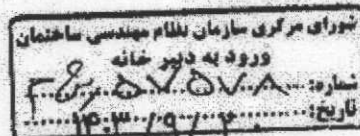 شورای مرکزی سازمان نظام مهندسی ساختمان
ورود به دبیر خانه
شماره: ۵۷۵۷۸
تاریخ: ۱۴۰۳/۹/۲